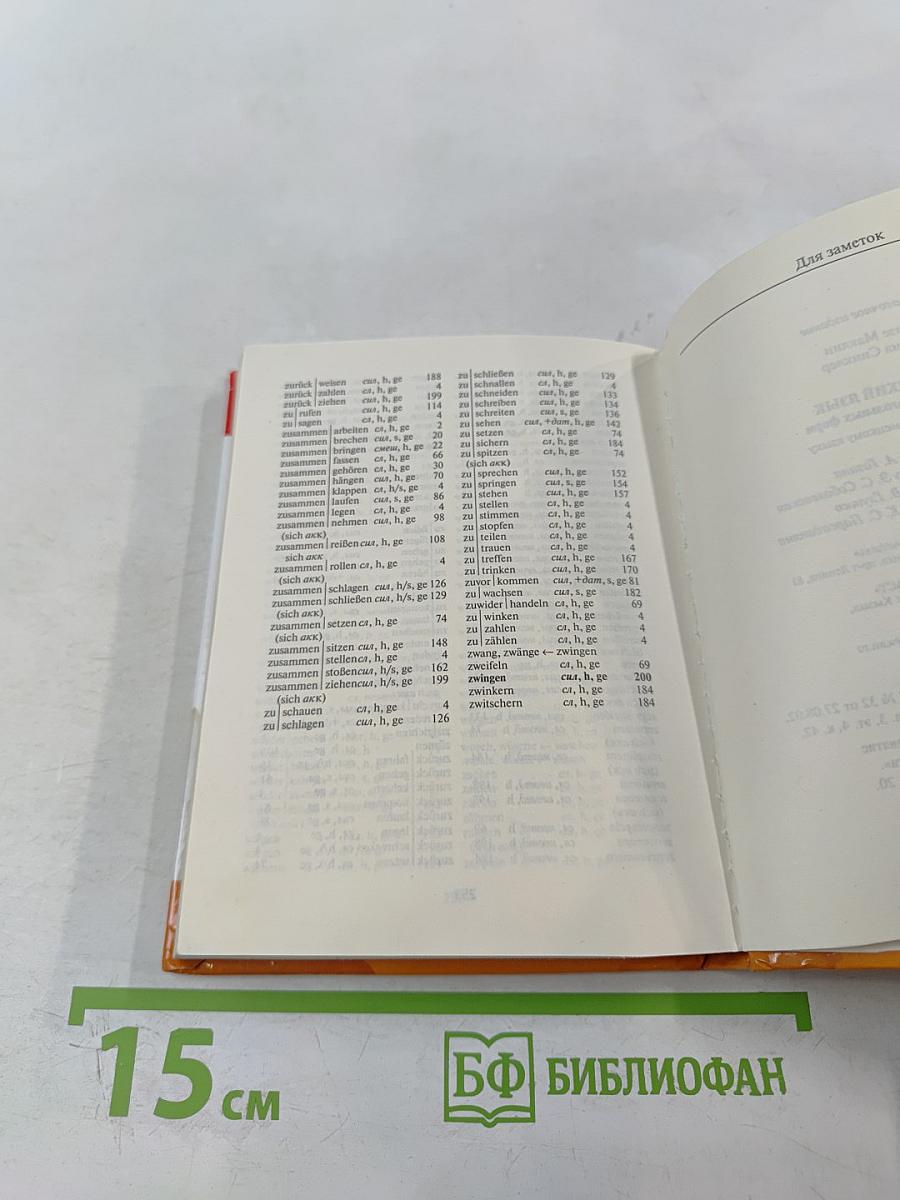 zurück|weisen сил, h, ge 188
zurück|zahlen сл, h, ge 4
zurück|ziehen сил, h, ge 199
zu|rufen сил, h, ge 114
zu|sagen сл, h, ge 4
zusammen|arbeiten сл, h, ge 2
zusammen|brechen сил, s, ge 20
zusammen|bringen смеш, h, ge 22
zusammen|fassen сл, h, ge 66
zusammen|gehören сл, h, ge 30
zusammen|hängen сил, h, ge 70
zusammen|klappen сл, h/s, ge 4
zusammen|laufen сил, s, ge 86
zusammen|legen сл, h, ge 4
zusammen|nehmen сил, h, ge 98
(sich акк)
zusammen|reißen сил, h, ge 108
sich акк
zusammen|rollen сл, h, ge 4
(sich акк)
zusammen|schlagen сил, h/s, ge 126
zusammen|schließen сил, h/s, ge 129
(sich акк)
zusammen|setzen сл, h, ge 74
(sich акк)
zusammen|sitzen сил, h, ge 148
zusammen|stellen сл, h, ge 4
zusammen|stoßen сил, h/s, ge 162
zusammen|ziehen сил, h/s, ge 199
(sich акк)
zu|schauen сл, h, ge 4
zu|schlagen сил, h, ge 126
zu|schließen сил, h, ge 129
zu|schnallen сл, h, ge 4
zu|schneiden сил, h, ge 133
zu|schreiben сил, h, ge 134
zu|schreiten сил, s, ge 136
zu|sehen сил, +дат, h, ge 142
zu|setzen сл, h, ge 74
zu|sichern сл, h, ge 184
zu|spitzen сл, h, ge 74
(sich акк)
zu|sprechen сил, h, ge 152
zu|springen сил, s, ge 154
zu|stehen сил, h, ge 157
zu|stellen сл, h, ge 4
zu|stimmen сл, h, ge 4
zu|stopfen сл, h, ge 4
zu|teilen сл, h, ge 4
zu|trauen сл, h, ge 4
zu|treffen сил, h, ge 167
zu|trinken сил, h, ge 170
zuvor|kommen сил, +дат, s, ge 81
zu|wachsen сил, s, ge 182
zuwider|handeln сл, h, ge 69
zu|winken сл, h, ge 4
zu|zahlen сл, h, ge 4
zu|zählen сл, h, ge 4
zwang, zwänge ← zwingen
zweifeln сл, h, ge 69
zwingen сил, h, ge 200
zwinkern сл, h, ge 184
zwitschern сл, h, ge 184
Для заметок
15 см
БФ БИБЛИОФАН